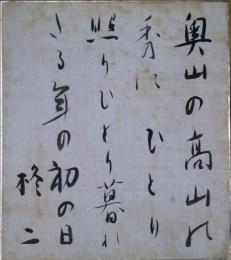 奥山の高山の
秀に ひとり
照りひとり暮れ
いる年の初の日
柊二